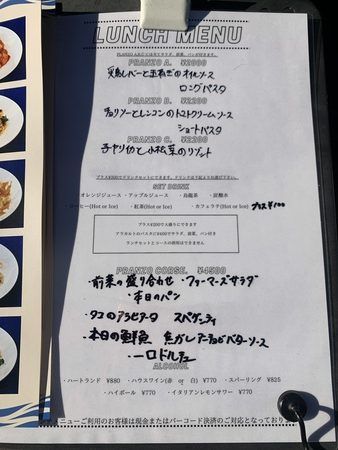 LUNCH MENU
PRANZO A. ¥2000
鶏レバーと玉ねぎのオイルソース
ロングパスタ
PRANZO B. ¥2200
チョリソーとレンコンのトマトクリームソース
ショートパスタ
PRANZO C. ¥2200
チヤリイカと小松菜のリゾット
SET DRINK
・オレンジジュース・アップルジュース ・烏龍茶 ・炭酸水
・コーヒー(Hot or Ice) ・紅茶(Hot or Ice) ・カフェラテ(Hot or Ice) プラス¥100
プラス¥200で大盛りにできます
アラカルトのパスタに¥400でサラダ、前菜、パン付き
ランチセットとコースの併用はできません
PRANZO CORSE. ¥4500
・前菜の盛り合わせ・ファーマーズサラダ
・本日のパン
・タコのアラビアータ スパゲッティ
・本日の鮮魚 焦がしアンチョビバターソース
・一口ドルチェ
ALCOHOL
・ハートランド ¥880 ・ハウスワイン(赤 or 白) ¥770 ・スパーリング ¥825
・ハイボール ¥770 ・イタリアンレモンサワー ¥770
メニューご利用のお客様は現金またはバーコード決済のご対応となっており